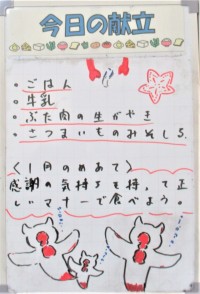 今日の献立
・ごはん
・牛乳
・ぶた肉の生がやき
さつまいものみそしる
〈1月のめあて〉
感謝の気持ちを持って正
しいマナーで食べよう。